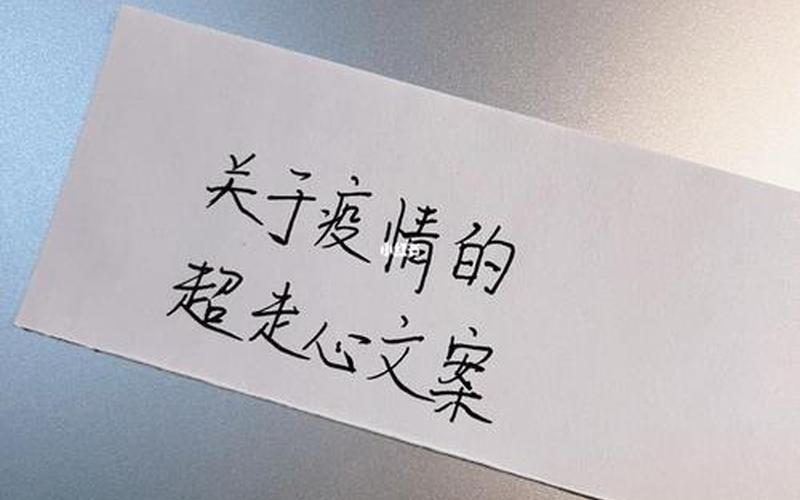 关于疫情的
超走心文案
小红书